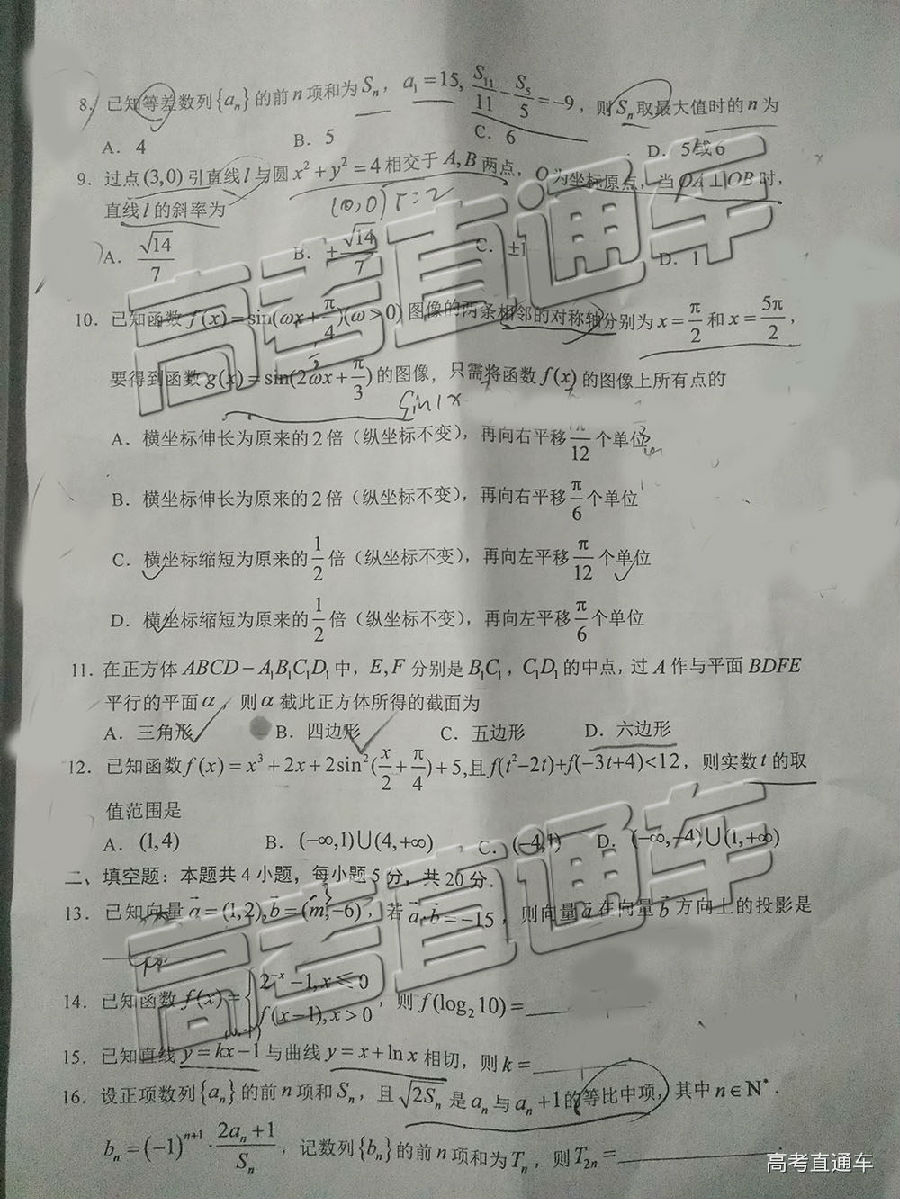 8. 已知等差数列{aₙ}的前n项和为Sₙ，a₁=15, S₁₁/11 - S₅/5 = -9，则Sₙ取最大值时的n为
A. 4 B. 5 C. 6 D. 5或6
9. 过点(3,0)引直线l与圆x²+y²=4相交于A,B两点，O为坐标原点，当OA⊥OB时，
直线l的斜率为
(0,0) r=2
A. √14/7 B. ±√14/7 C. ±1 D. 1
10. 已知函数f(x)=sin(ωx+π/4)(ω>0)图像的两条相邻的对称轴分别为x=π/2和x=5π/2，
要得到函数g(x)=sin(2ωx+π/3)的图像，只需将函数f(x)的图像上所有点的
A. 横坐标伸长为原来的2倍（纵坐标不变），再向右平移π/12个单位
B. 横坐标伸长为原来的2倍（纵坐标不变），再向右平移π/6个单位
C. 横坐标缩短为原来的1/2倍（纵坐标不变），再向左平移π/12个单位
D. 横坐标缩短为原来的1/2倍（纵坐标不变），再向左平移π/6个单位
11. 在正方体ABCD-A₁B₁C₁D₁中，E,F分别是B₁C₁，C₁D₁的中点，过A作与平面BDFE
平行的平面α，则α截此正方体所得的截面为
A. 三角形 B. 四边形 C. 五边形 D. 六边形
12. 已知函数f(x)=x³-2x+2sin²(x/2+π/4)+5,且f(t²-2t)+f(-3t+4)<12，则实数t的取
值范围是
A. (1,4) B. (-∞,1)∪(4,+∞) C. (-4,1) D. (-∞,-4)∪(1,+∞)
二、填空题：本题共4小题，每小题5分，共20分.
13. 已知向量a=(1,2),b=(m,-6)，若a·b=-15，则向量a在向量b方向上的投影是
______
14. 已知函数f(x)={2⁻ˣ-1,x≤0 f(x-1),x>0，则f(log₂10)=______
15. 已知直线y=kx-1与曲线y=x+lnx相切，则k=______
16. 设正项数列{aₙ}的前n项和Sₙ，且√2Sₙ是aₙ与aₙ+1的等比中项，其中n∈N*.
bₙ=(-1)ⁿ⁺¹·(2aₙ+1)/Sₙ，记数列{bₙ}的前n项和为Tₙ，则T₂ₙ=______
高考直通车
高考直通车
高考直通车